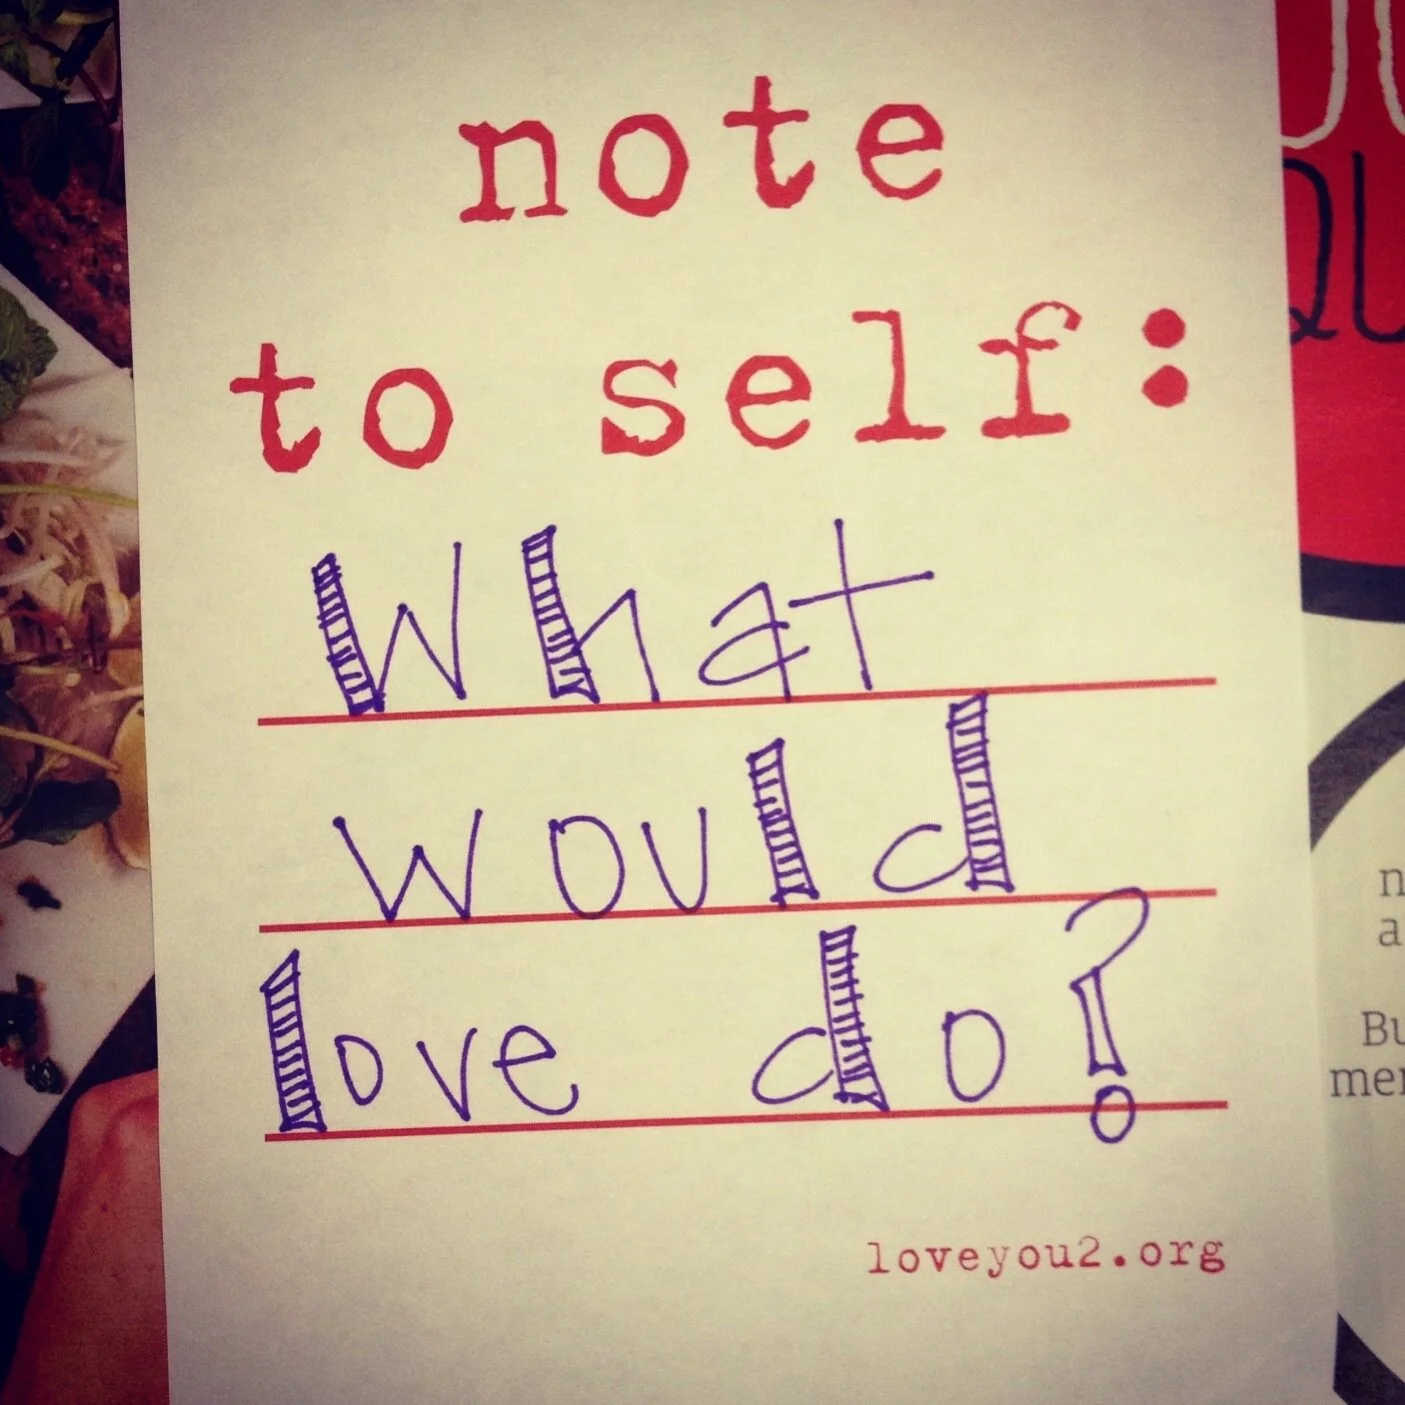 note
to self:
What
would
love do?
loveyou2.org
QU
n
a
Bu
mer